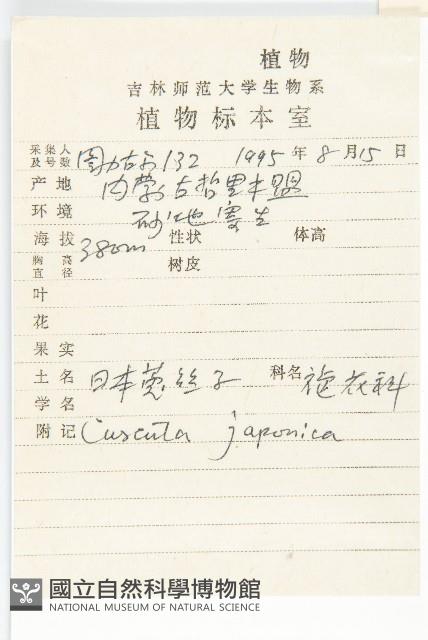 植物
吉林师范大学生物系
植物标本室
采集人及号数 132 1995年8月15日
产地 内蒙古哲里木盟
环境 砂地寄生
海拔 380m 性状 体高
胸高直径 树皮
叶
花
果实
土名 日本菟丝子 科名 旋花科
学名
附记 Cuscuta japonica
國立自然科學博物館
NATIONAL MUSEUM OF NATURAL SCIENCE